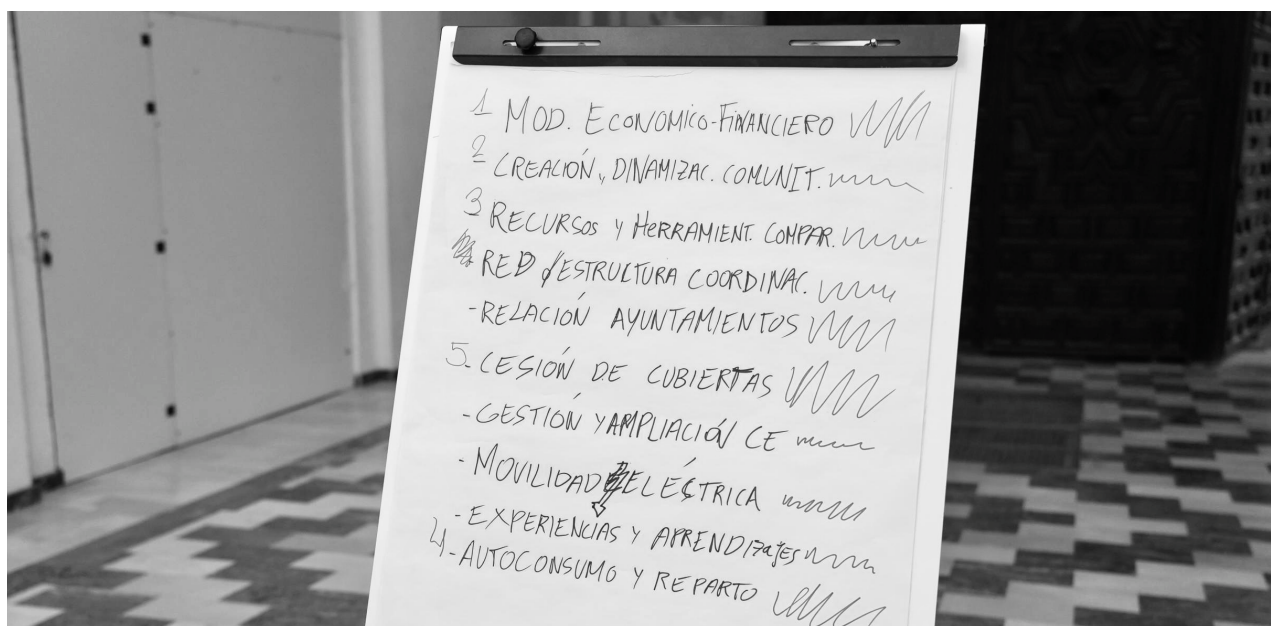 1 MOD. ECONOMICO-FINANCIERO
2 CREACIÓN, DINAMIZAC. COMUNIT.
3 RECURSOS Y HERRAMIENT. COMPAR.
RED /ESTRUCTURA COORDINAC.
-RELACIÓN AYUNTAMIENTOS
5-CESIÓN DE CUBIERTAS
-GESTIÓN Y AMPLIACIÓN CE
-MOVILIDAD ELÉCTRICA
-EXPERIENCIAS Y APRENDIZAJES
4-AUTOCONSUMO Y REPARTO